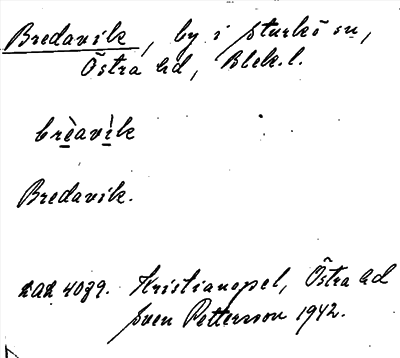 Bredavik, by i Sturkö sn,
Östra hd, Blek. l.
brèavìk
Bredavik.
Kristianopel, Östra hd
Sven Petterson 1942.